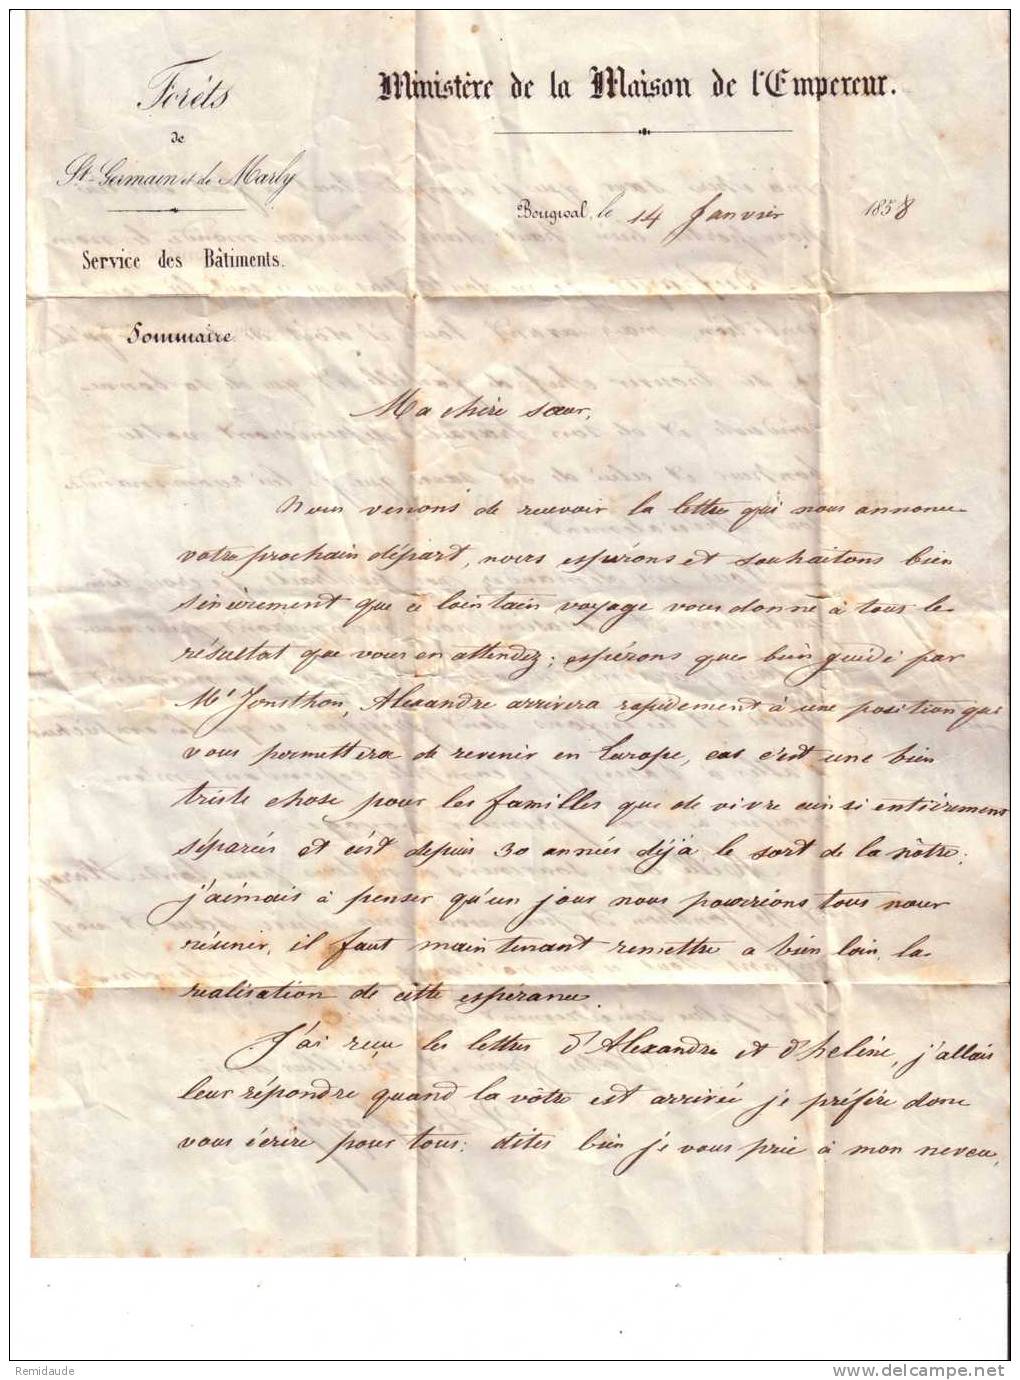 Forêts
de
St-Germain et de Marly
Service des Bâtiments.
Sommaire.
Ministère de la Maison de l'Empereur.
Bougival, le 14 Janvier 1858
Ma chère sœur,
Nous venons de recevoir la lettre qui nous annonce
votre prochain départ, nous espérons et souhaitons bien
sincèrement que ce lointain voyage vous donne à tous le
résultat que vous en attendez; espérons que bien guidé par
Mr Jonsthon, Alexandre arrivera rapidement à une position qui
vous permettera de revenir en Europe, car c'est une bien
triste chose pour les familles que de vivre ainsi entièrement
séparées et c'est depuis 30 années déjà le sort de la nôtre;
j'aimais à penser qu'un jour nous pourrions tous nour
réunir, il faut maintenant remettre a bien loin, la
realisation de cette espérance.
J'ai reçu les lettres d'Alexandre et d'heline, j'allais
leur répondre quand la vôtre est arrivée je préfère donc
vous écrire pour tous; dites bien je vous prie à mon neveu,
Remidaude
www.delcampe.net